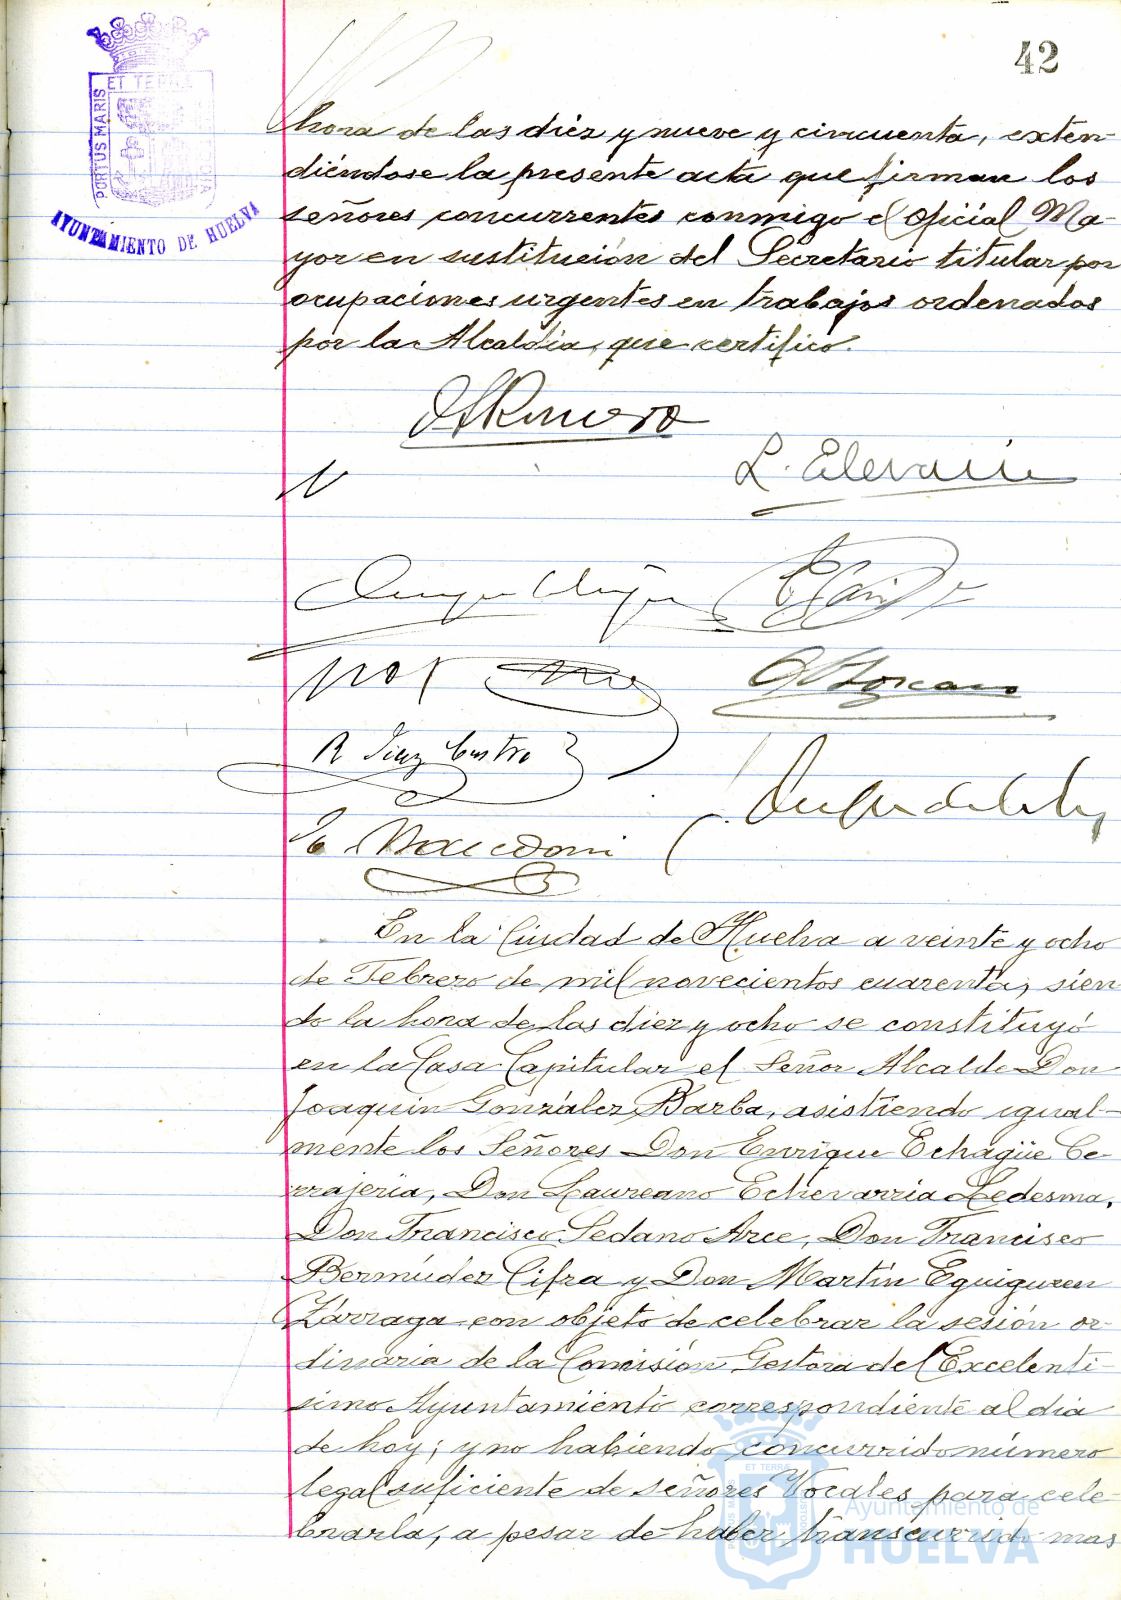 42
PORTUS MARIS ET TERRÆ
AYUNTAMIENTO DE HUELVA
hora de las diez y nueve y cincuenta, exten-
diéndose la presente acta que firman los
señores concurrentes conmigo el Oficial Ma-
yor en sustitución del Secretario titular por
ocupaciones urgentes en trabajos ordenados
por la Alcaldía, que certifico.
R Diaz Castro
En la Ciudad de Huelva a veinte y ocho
de Febrero de mil novecientos cuarenta, sien-
do la hora de las diez y ocho se constituyó
en la Casa Capitular el Señor Alcalde Don
Joaquin González Barba, asistiendo igual-
mente los Señores Don Enrique Echagüe Ce-
rrajeria, Don Laureano Echevarria Ledesma,
Don Francisco Sedano Arce, Don Francisco
Bermúdez Cifra y Don Martín Eguiguren
Zárraga con objeto de celebrar la sesión or-
dinaria de la Comisión Gestora del Excelentí-
simo Ayuntamiento correspondiente al dia
de hoy; y no habiendo concurrido número
legal suficiente de señores Vocales para cele-
brarla, a pesar de haber transcurrido mas
Ayuntamiento de
HUELVA